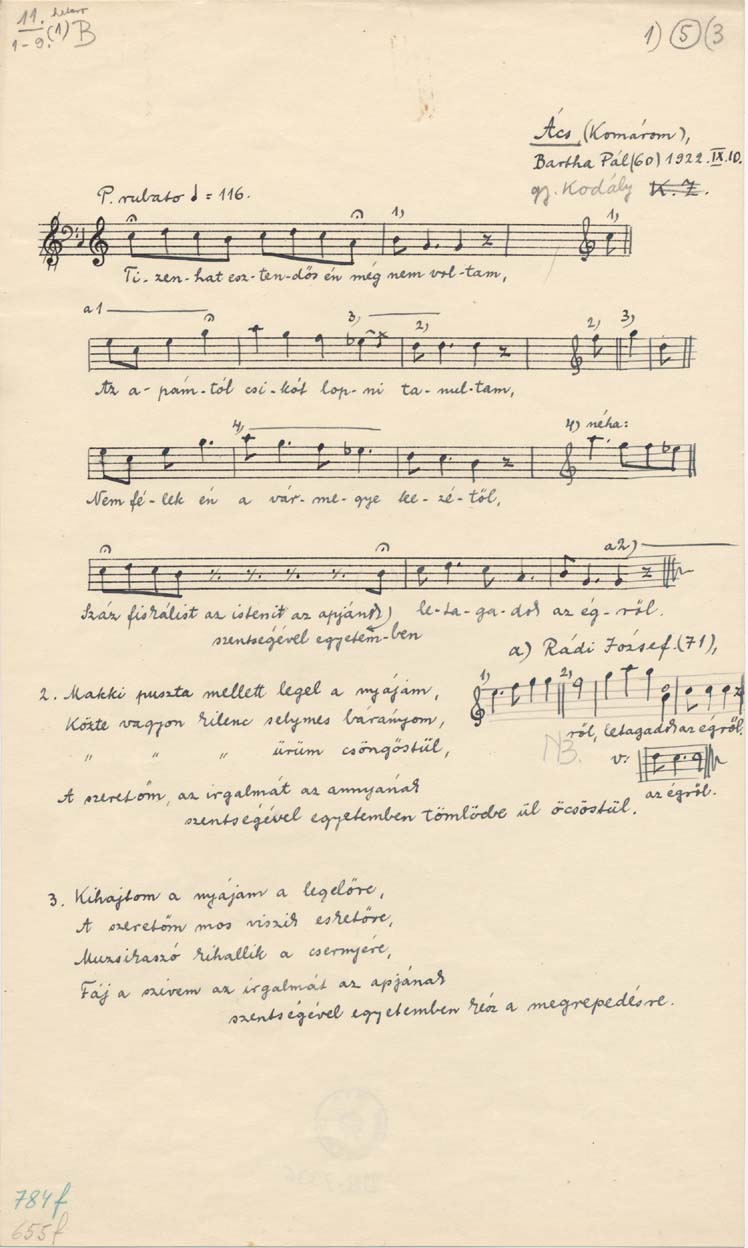 11. 
1-9. (1) B
1) (5) (3
Ács, (Komárom),
Bartha Pál (60) 1922. IX. 10.
gy. Kodály K. Z.
P. rubato ♩ = 116.
1) 1)
Ti-zen-hat esz-ten-dős én még nem vol-tam,
a1 3) 2) 2) 3)
Az a-pám-tól csi-kót lop-ni ta-nul-tam,
4) 4) néha:
Nem fé-lek én a vár-me-gye ke-zé-től,
a2)
Száz fiskálist az istenit az apjának) le-ta-ga-dok az ég-ről.
szentségével egyetem-ben
a) Rádi József. (71),
1) 2)
ről, letagadok az égről.
NB. v:
az égről.
2. Makki puszta mellett legel a nyájam,
Közte vagyon kilenc selymes bárányom,
" " " ürüm csöngőstül,
A szeretőm, az irgalmát az annyának
szentségével egyetemben tömlödbe ül öcsöstül.
3. Kihajtom a nyájam a legelőre,
A szeretőm mos viszik esketőre,
Muzsikaszó kihallik a csernyére,
Fáj a szívem az irgalmát az apjának
szentségével egyetemben kész a megrepedésre.
784f
655f